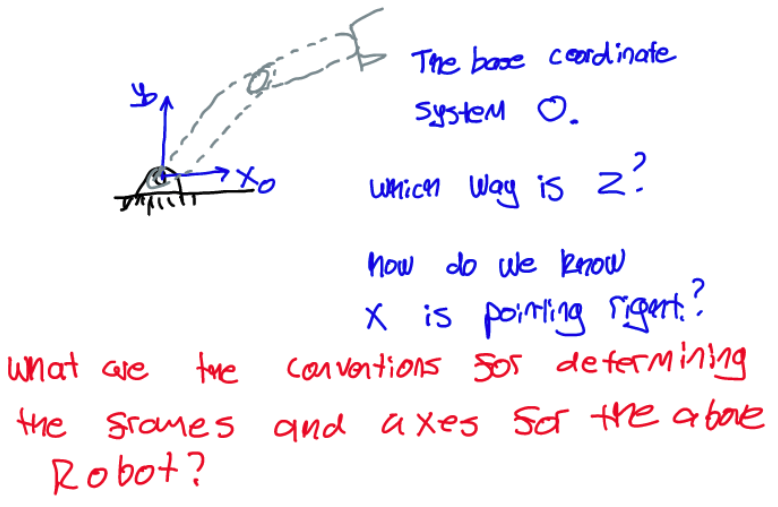 The base coordinate
system O.
yo
xo
which way is z?
how do we know
x is pointing right?
What are the conventions for determining
the frames and axes for the above
Robot?